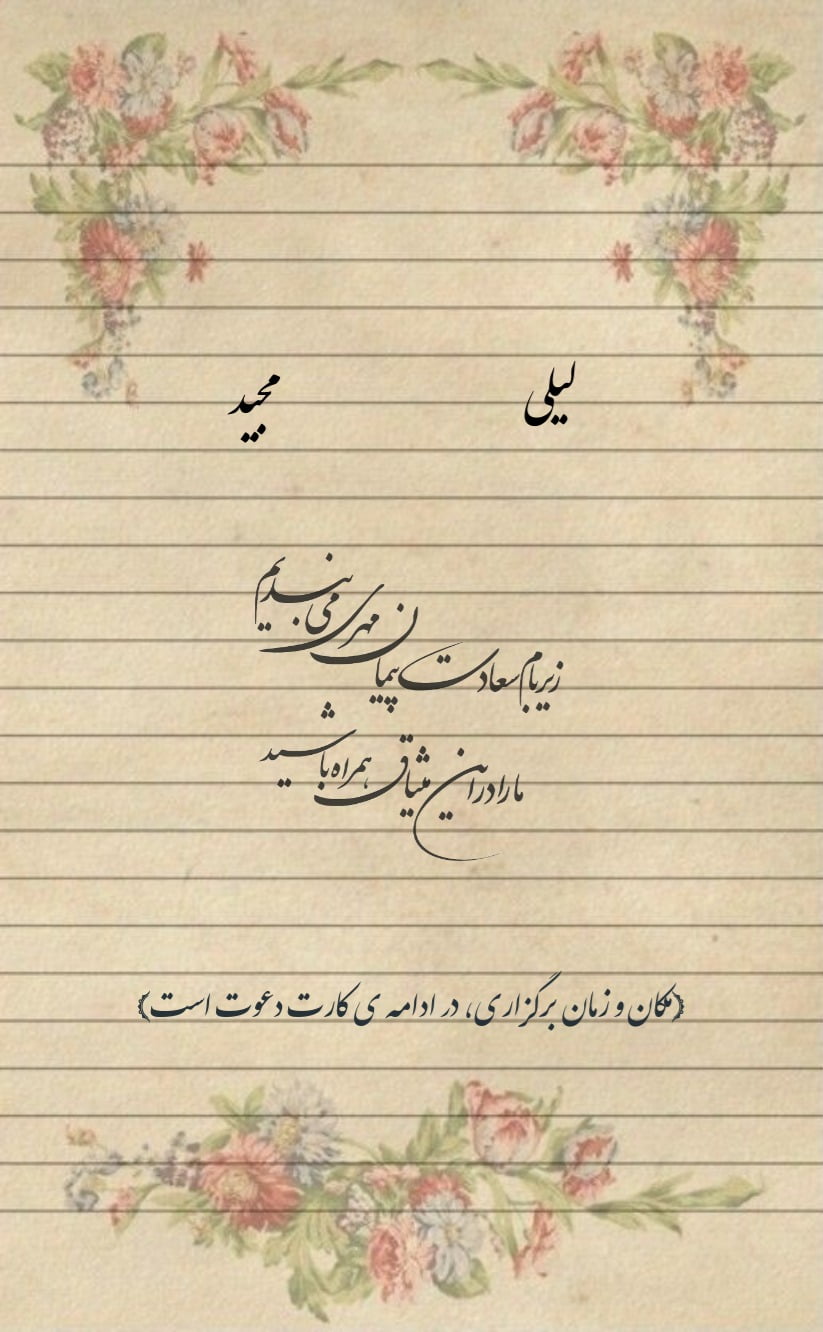 لیلی مجید
زیر بام سعادت پیمان مهری می بندیم
ما را در این میثاق همراه باشید
﴿مکان و زمان برگزاری، در ادامه ی کارت دعوت است﴾